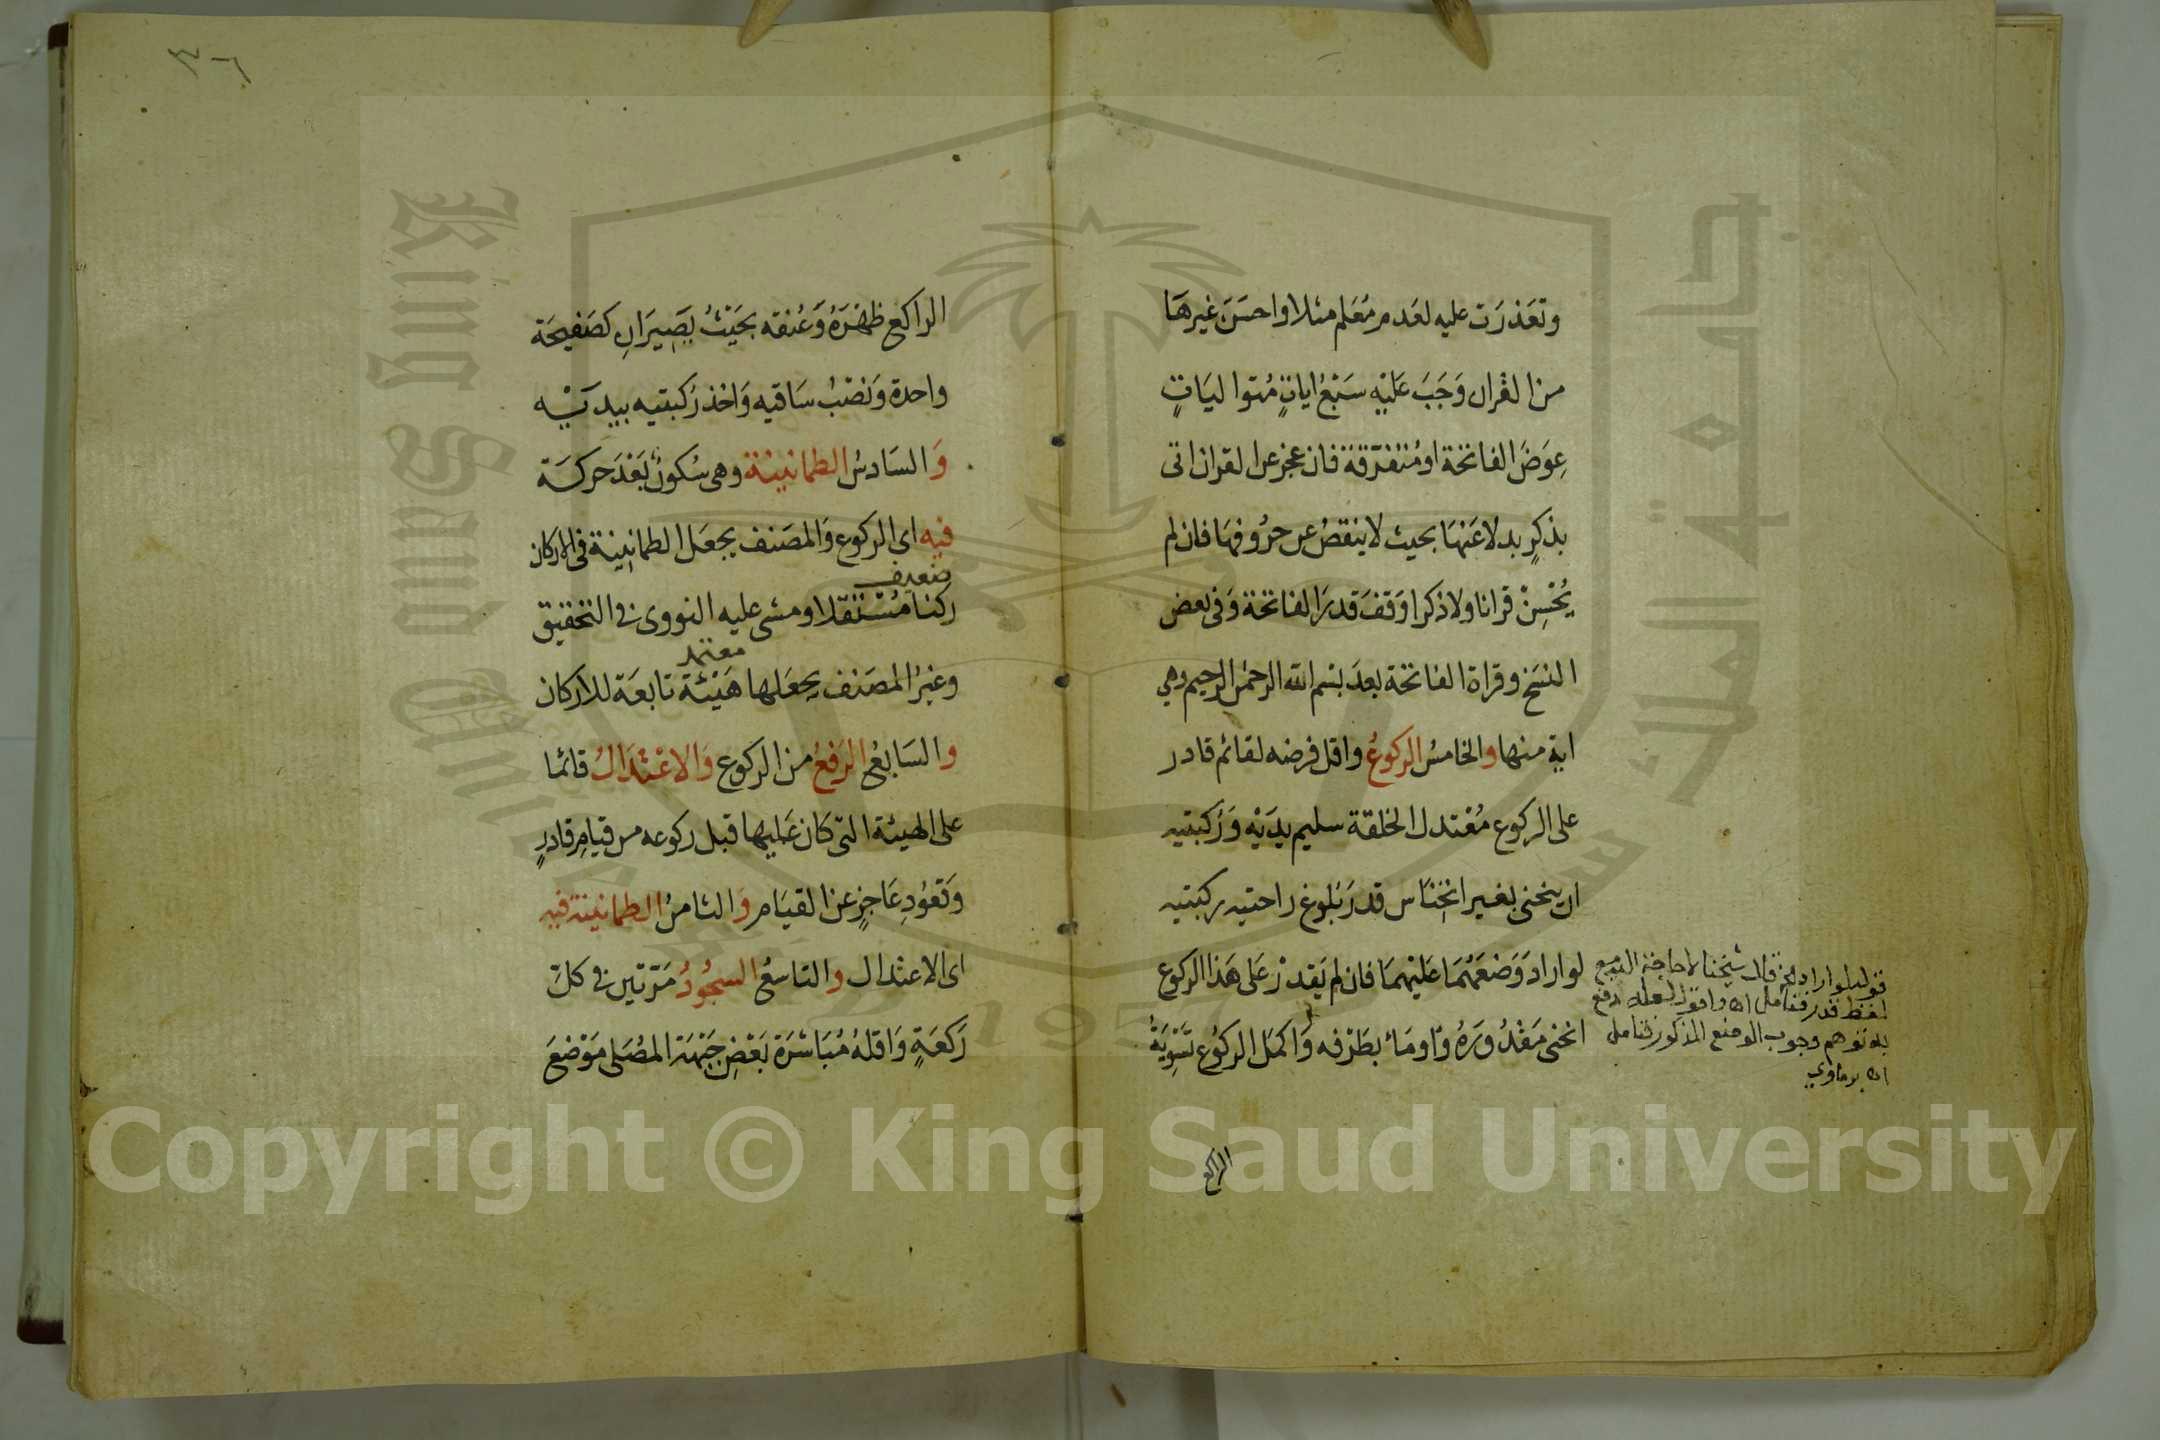 وتعَذرَت عليه لعَدم مُعَلم مثلا واحسَنَ غيرهَا
من القران وَجَبَ عَليْهِ سَبْعُ اياتٍ مُتوا ليَاتٍ
عِوَضَ الفاتحة او مُتفرّقة فان عجز عن القران اتى
بذكرٍ بدلا عَنهَا بحيث لا ينقصُ عن حرُوفهَا فان لم
يُحْسِنْ قرانا ولا ذكرا وَقفَ قدرَ الفاتحة وَفى بعض
النسَخ وقراة الفاتحة بعدَ بسْم الله الرحمٰن الرحيم وهي
اية منها والخامسُ الركوعُ واقل فرضه لقائم قادر
على الركوع مُعْتدل الخلقة سليم يدَيْه وَركبتيه
ان ينحنى بغير انخِنَاس قدرَ بُلوغ راحتيه ركبتيه
لو اراد وَضعَهُمَا عَليْهمَا فان لم يَقدرْ عَلى هَذا الركوع
انحنى مَقدُورَهُ وَاومَأ بطَرْفه وَاكمَل الركوُع تسْوِيَةُ
قوله لو اراد الخ قال شيخنا لا حاجة اليه مع
لفظ قدر فتامل اه واقول لعله دفع
به توهم وجوب الوضع المذكور فتامل
اه برماوي
الراكع
٣٦
الراكع ظهْرَهُ وَعُنقه بحَيْثُ يصِيرَانِ كصَفيحَة
واحدة وَنصْبُ سَاقيه وَاخذ ركبتيه بيدَيْه
وَالسَادسُ الطمانينة وهى سُكونٌ بَعْدَ حركة
فيه اى الركوع وَالمصَنف يجعَل الطمانِينة فى الاركان
ضعيف
ركنا مُسْتقلا ومشى عليه النووى فى التحقيق
معتمد
وغيْرُ المصَنف يجعَلها هَيْئَة تابعَة للاركان
والسَابعُ الرَفعُ من الركوع وَالاعْتدَالُ قائما
على الهيئة التى كان عَليها قبل ركوعه من قيام قادرٍ
وَقعُودِ عَاجزٍ عن القيَام وَالثامنُ الطمانينة فيه
اى الاعتدال والتاسعُ السجُودُ مَرّتين فى كلّ
رَكعَةٍ وَاقلهُ مُبَاشرَة بَعْضِ جَبْهَة المُصَلى مَوْضعَ
Copyright © King Saud University